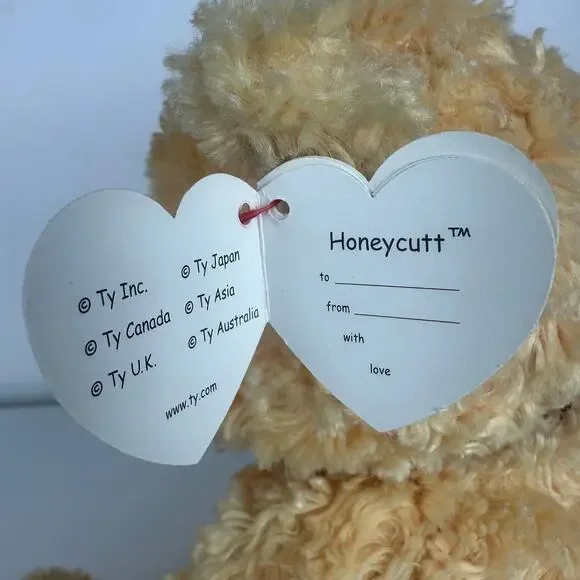 © Ty Inc.
© Ty Canada
© Ty U.K.
© Ty Japan
© Ty Asia
© Ty Australia
www.ty.com
Honeycutt™
to
from
with
love